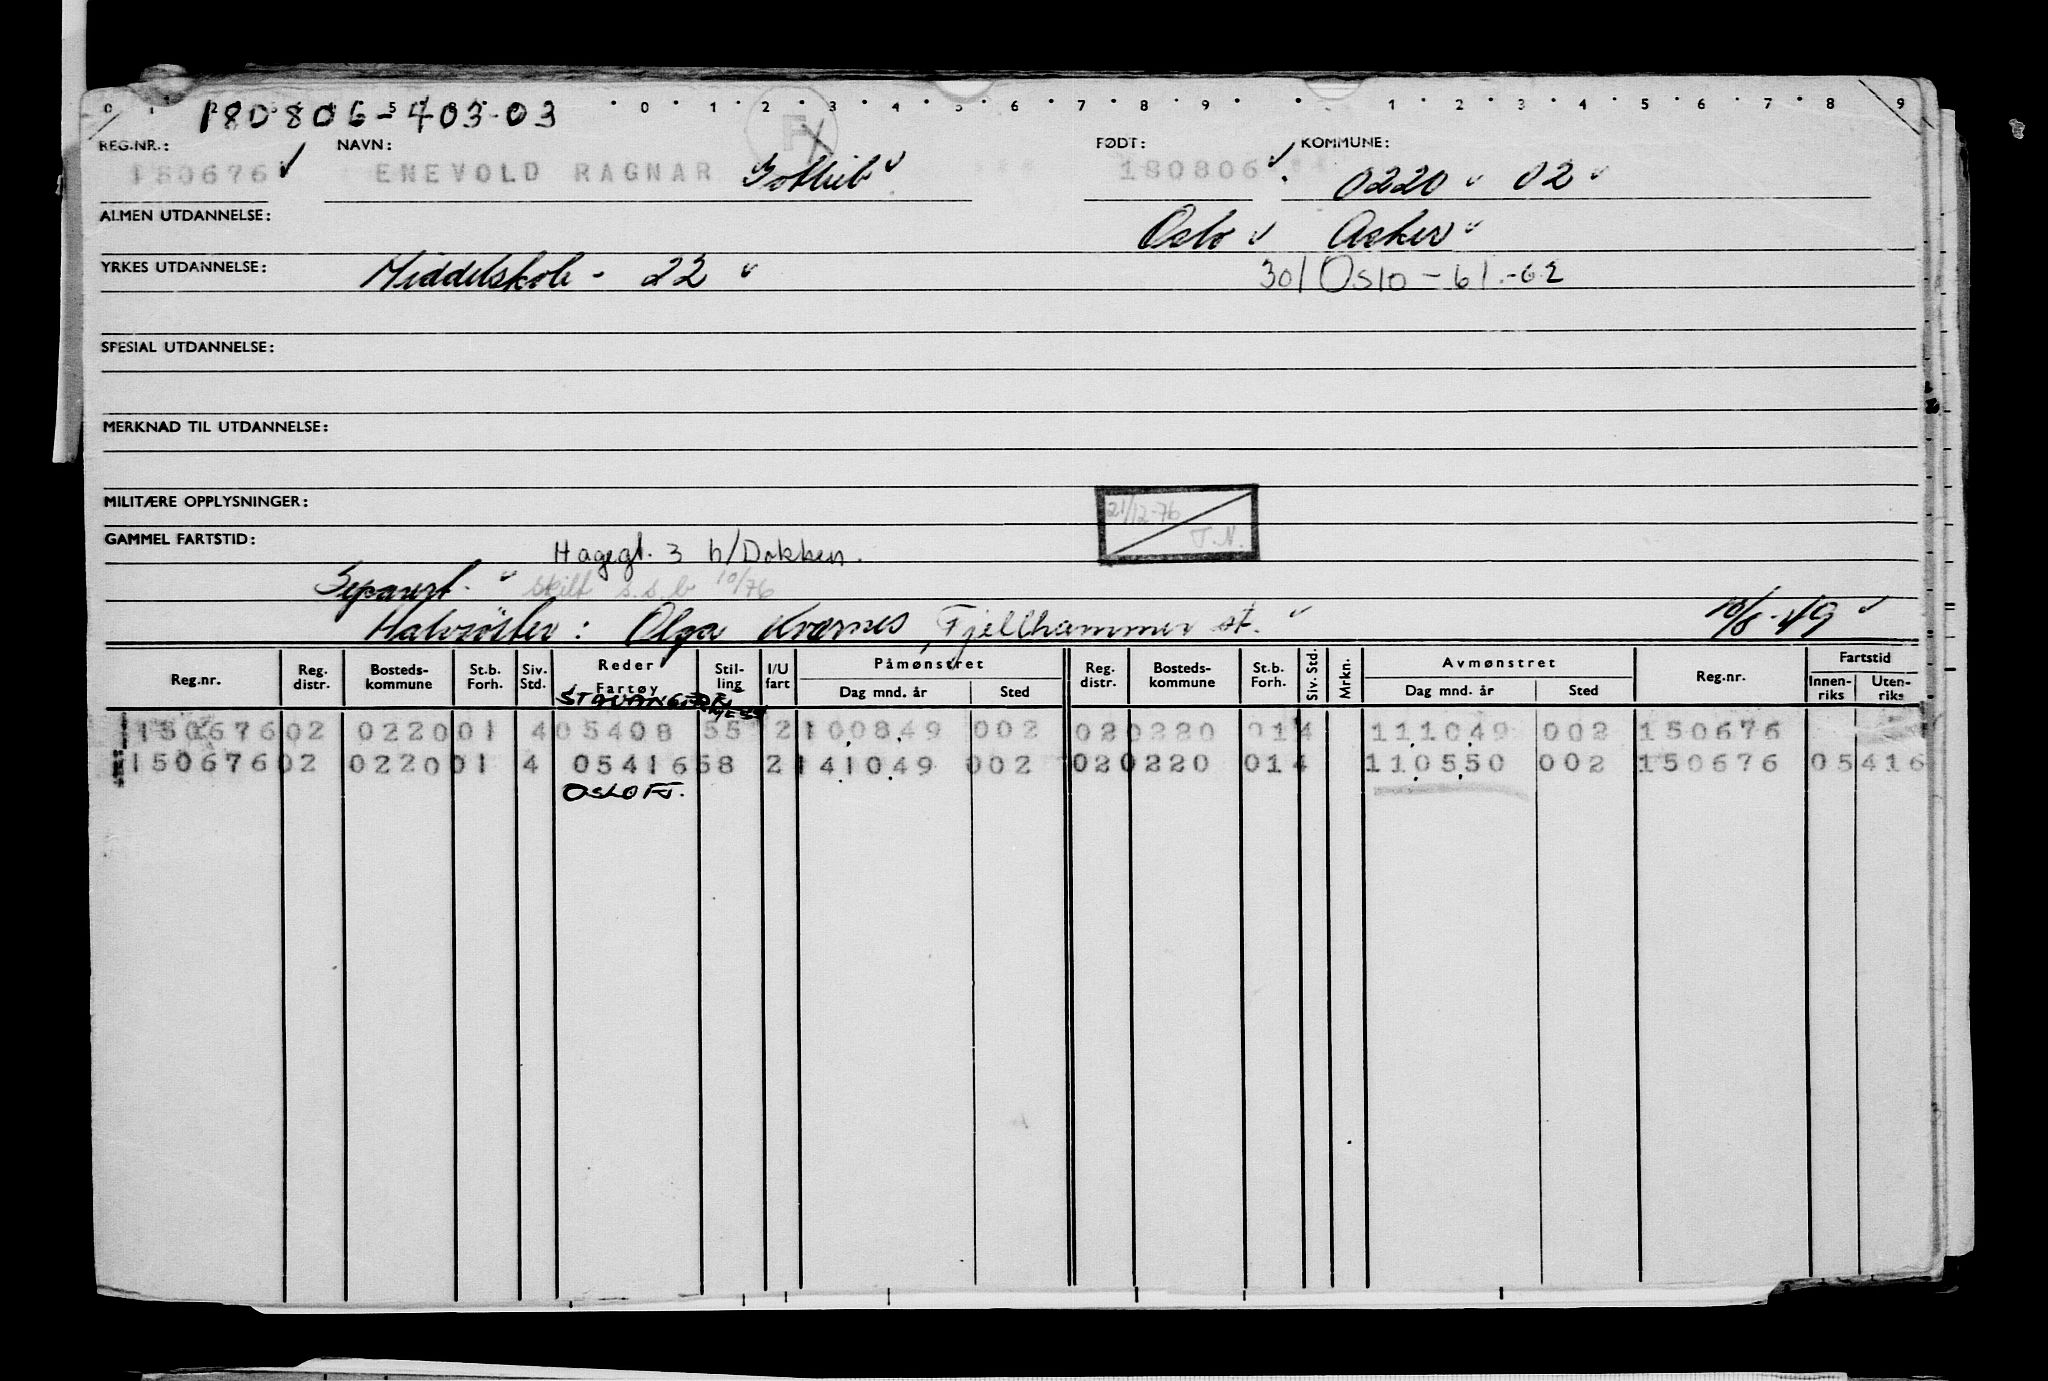 0 1 2 3 4 5 6 · 0 · 1 · 2 · 3 · 4 · 5 · 6 · 7 · 8 · 9 · · 1 · 2 · 3 · 4 · 5 · 6 · 7 · 8 9
180806-403-03
REG.NR.: NAVN: FØDT: KOMMUNE:
150676 ENEVOLD RAGNAR Gottlieb 180806 0220 02
ALMEN UTDANNELSE: Oslo Asker
YRKES UTDANNELSE: Middelskole - 22 301 Oslo - 61.-62
SPESIAL UTDANNELSE:
MERKNAD TIL UTDANNELSE:
MILITÆRE OPPLYSNINGER: 21/12-76 T.N.
GAMMEL FARTSTID: Hagegt. 3 b/Dokken.
Separert. Skilt s.s.b 10/76
Halvsöster: Olga Kvernes, Fjellhammer st. 10/8-49
Reg.nr. Reg. distr. Bosteds-kommune St.b. Forh. Siv. Std. Reder Fartøy Stil-ling I/U fart Påmønstret Dag mnd. år Sted Reg. distr. Bosteds-kommune St.b. Forh. Siv. Std. Mrkn. Avmønstret Dag mnd. år Sted Reg.nr. Fartstid Innen-riks Uten-riks
STAVANGER
150676 02 0220 01 4 05408 55 2 100849 002 02 0220 01 4 111049 002 150676
150676 02 0220 01 4 05416 58 2 141049 002 02 0220 01 4 110550 002 150676 05416
OSLO FJ.